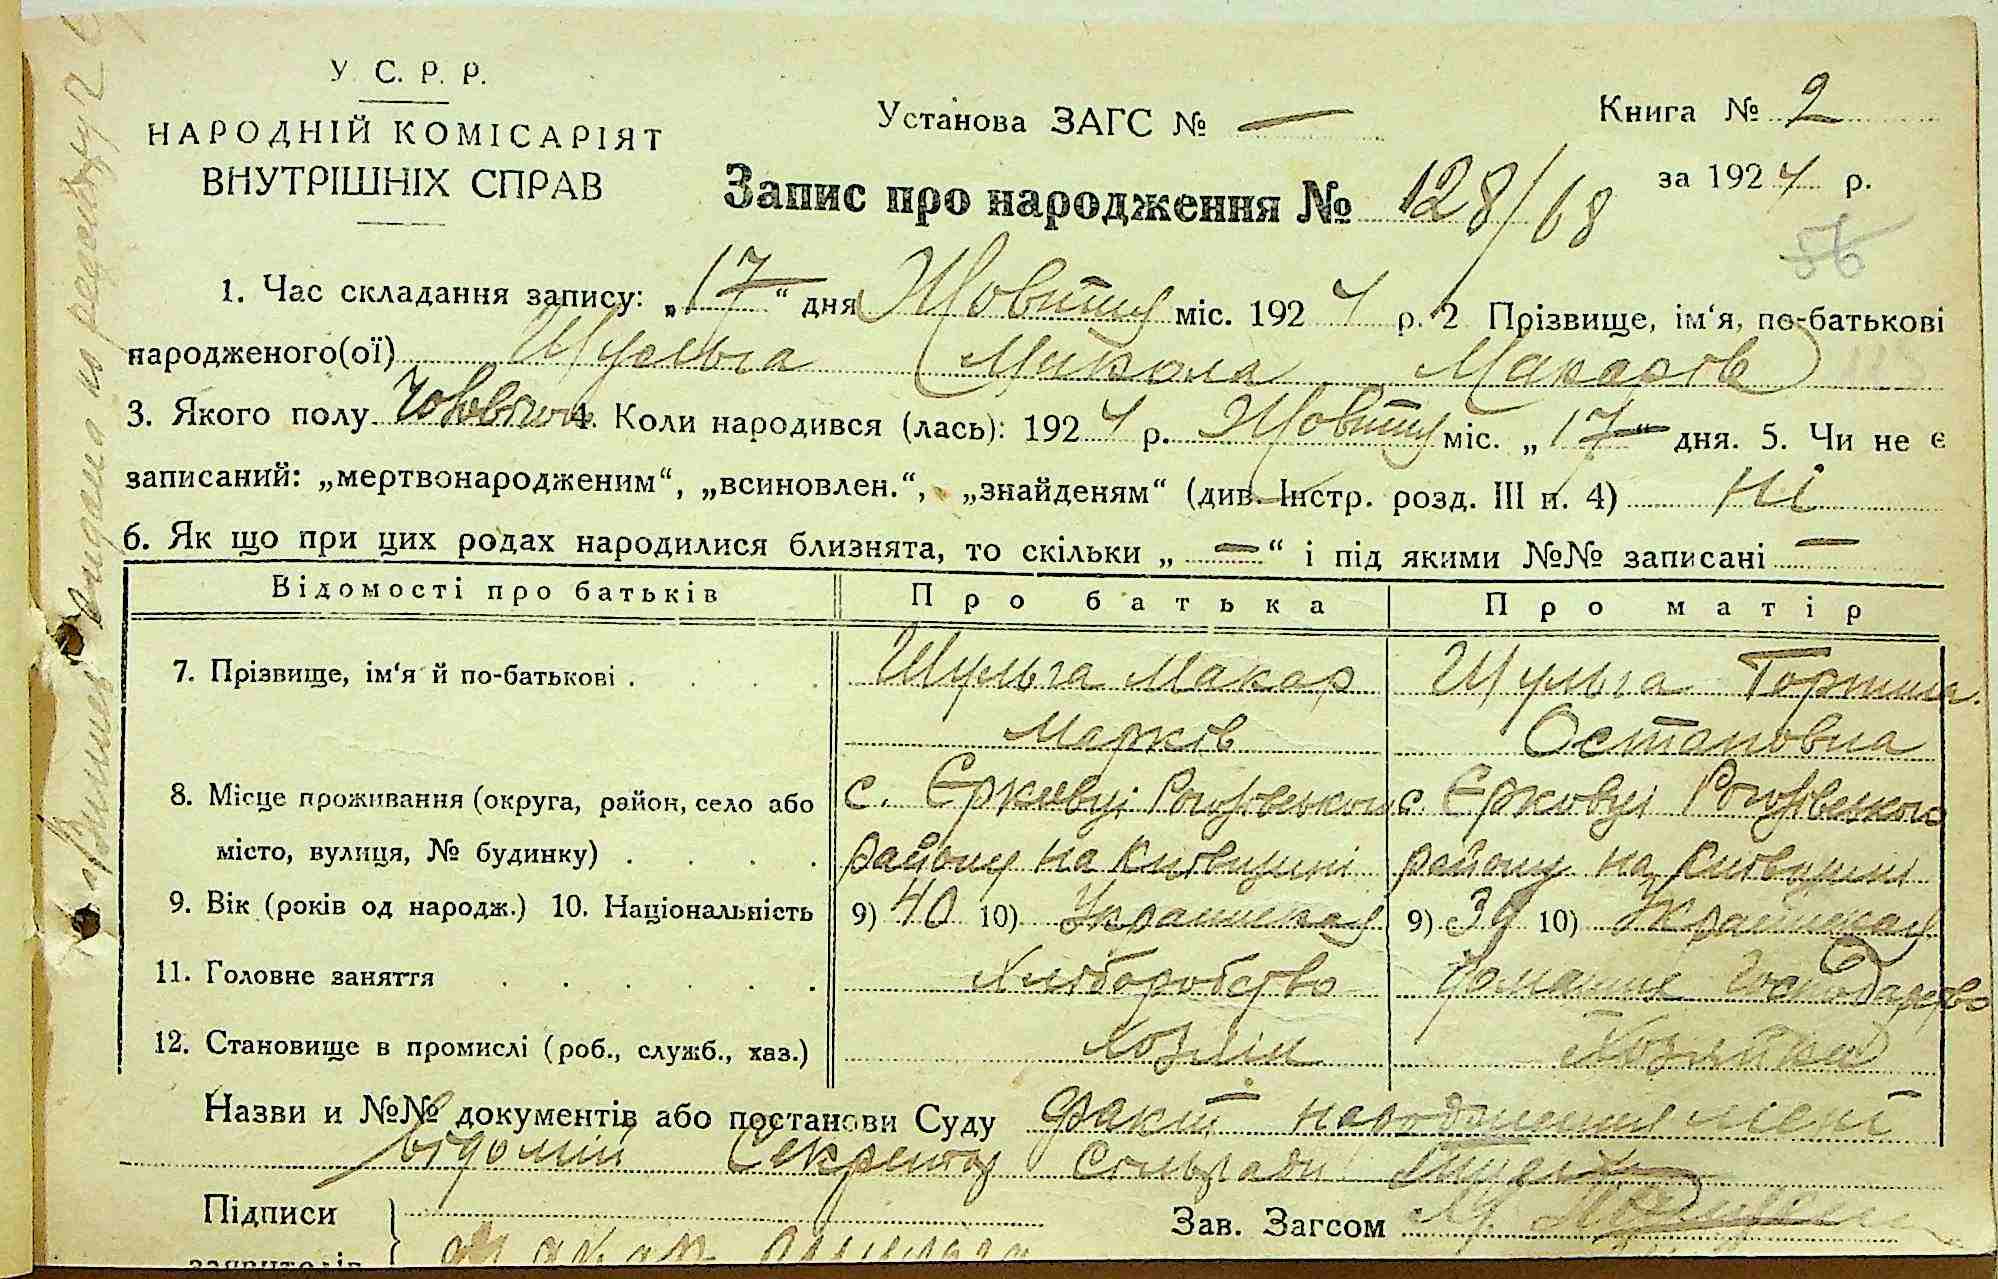 У. С. Р. Р.
НАРОДНІЙ КОМІСАРІЯТ
ВНУТРІШНІХ СПРАВ
Установа ЗАГС № —
Книга № 2
за 1924 р.
Запис про народження № 128/68
56
1. Час складання запису: „17“ дня Жовтня міс. 1924 р. 2 Прізвище, ім‘я, по-батькові
народженого(ої) Шульга Микола Макарів
3. Якого полу Чоловічого 4. Коли народився (лась): 1924 р. Жовтня міс. „17“ дня. 5. Чи не є
записаний: „мертвонародженим“, „всиновлен.“, „знайденям“ (див. Інстр. розд. III п. 4) Ні
6. Як що при цих родах народилися близнята, то скільки „—“ і під якими №№ записані —
Відомості про батьків Про батька Про матір
7. Прізвище, ім‘я й по-батькові . . . . Шульга Макар Шульга Горпина
Марків Остаповна
8. Місце проживання (округа, район, село або с. Єрківці с. Єрковці
місто, вулиця, № будинку) . . . . району на Київщині району на Київщині
9. Вік (років од народж.) 10. Національність 9) 40 10) Українська 9) 39 10) Українська
11. Головне заняття . . . . . . Хліборобство Домашнє Господарство
12. Становище в промислі (роб., служб., хаз.) Хозяїн Хозяйка
Назви и №№ документів або постанови Суду Факт народження мені
відомий Секретар Сільради
Підписи
Зав. Загсом
заявителів Макар Шульга